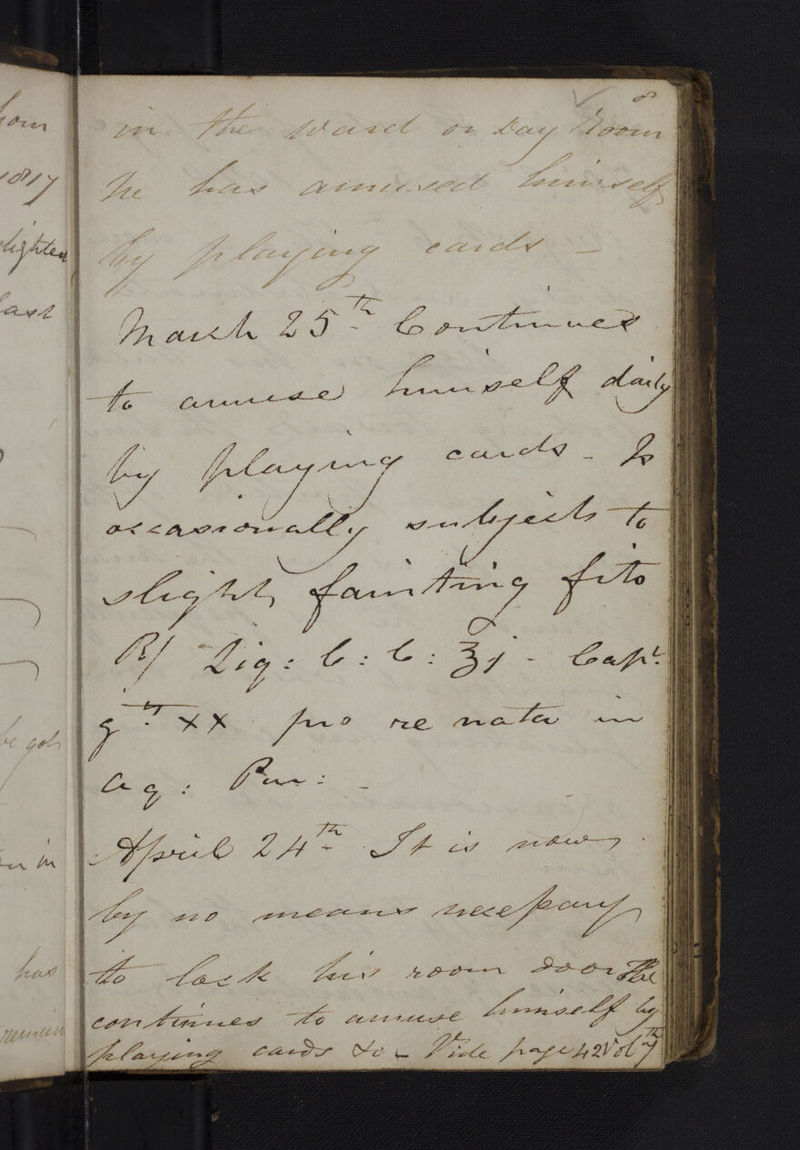 8
in the ward or Day Room
he has amused himself
by playing cards -
March 25th Continues
to amuse himself daily
by playing cards - Is
occasionally subject to
slight fainting fits
R/ Liq: C: C: ʒj - Capt.
gtts xx pro re nata in
Aq: Pur: -
April 24th It is now
by no means necessary
to lock his room door He
continues to amuse himself by
playing cards &c - Vide page 42 Vol 7th
hom
1817
lighten
last
be got
in
has
remain